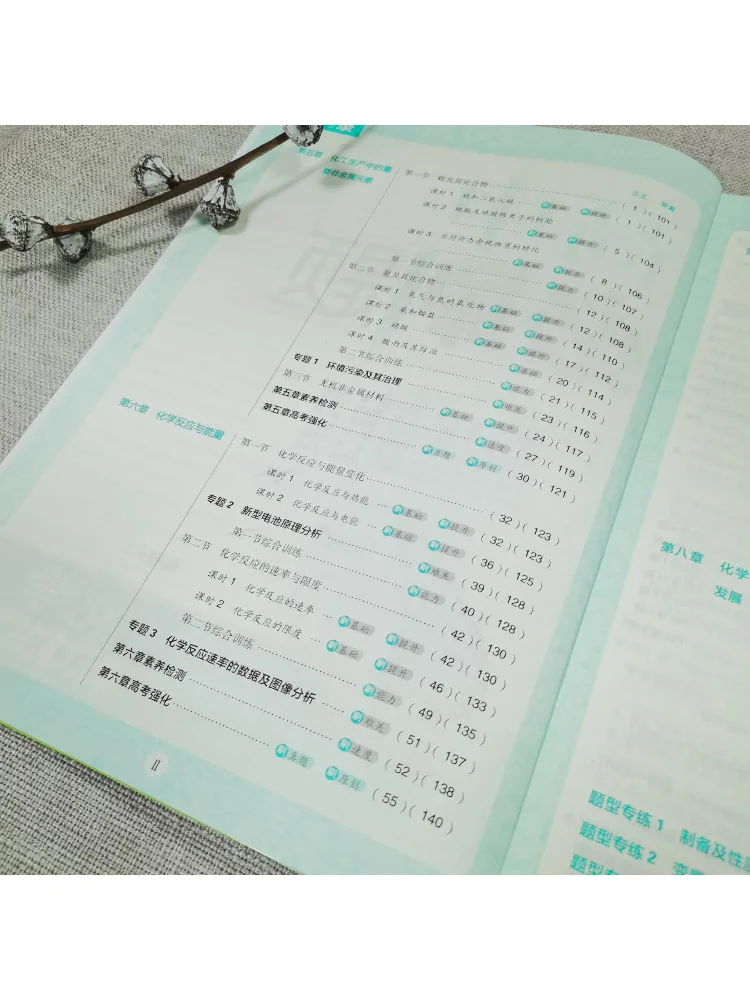 录
正文 答案
第五章 化工生产中的重
要非金属元素
第一节 硫及其化合物 ( 1 )( 101 )
课时 1 硫和二氧化硫 刷基础 刷提升 ( 1 )( 101 )
课时 2 硫酸及硫酸根离子的检验
刷基础 刷提升 ( 5 )( 104 )
课时 3 不同价态含硫物质的转化
刷基础 刷提升 ( 8 )( 106 )
第一节综合训练 刷能力 ( 10 )( 107 )
第二节 氮及其化合物 ( 12 )( 108 )
课时 1 氮气与氮的氧化物 刷基础 刷提升 ( 12 )( 108 )
课时 2 氨和铵盐 刷基础 刷提升 ( 14 )( 110 )
课时 3 硝酸 刷基础 刷提升 ( 17 )( 112 )
课时 4 酸雨及其防治 刷基础 ( 20 )( 114 )
第二节综合训练 刷能力 ( 21 )( 115 )
专题 1 环境污染及其治理 刷难关 ( 23 )( 116 )
第三节 无机非金属材料 刷基础 刷提升 ( 24 )( 117 )
第五章素养检测 刷速度 ( 27 )( 119 )
第五章高考强化 刷真题 刷原创 ( 30 )( 121 )
第六章 化学反应与能量
第一节 化学反应与能量变化 ( 32 )( 123 )
课时 1 化学反应与热能 刷基础 刷提升 ( 32 )( 123 )
课时 2 化学反应与电能 刷基础 刷提升 ( 36 )( 125 )
专题 2 新型电池原理分析 刷难关 ( 39 )( 128 )
第一节综合训练 刷能力 ( 40 )( 128 )
第二节 化学反应的速率与限度 ( 42 )( 130 )
课时 1 化学反应的速率 刷基础 刷提升 ( 42 )( 130 )
课时 2 化学反应的限度 刷基础 刷提升 ( 46 )( 133 )
第二节综合训练 刷能力 ( 49 )( 135 )
专题 3 化学反应速率的数据及图像分析 刷难关 ( 51 )( 137 )
第六章素养检测 刷速度 ( 52 )( 138 )
第六章高考强化 刷真题 刷原创 ( 55 )( 140 )
II
第八章 化学
发展
题型专练 1 制备及性
题型专练 2
题型专